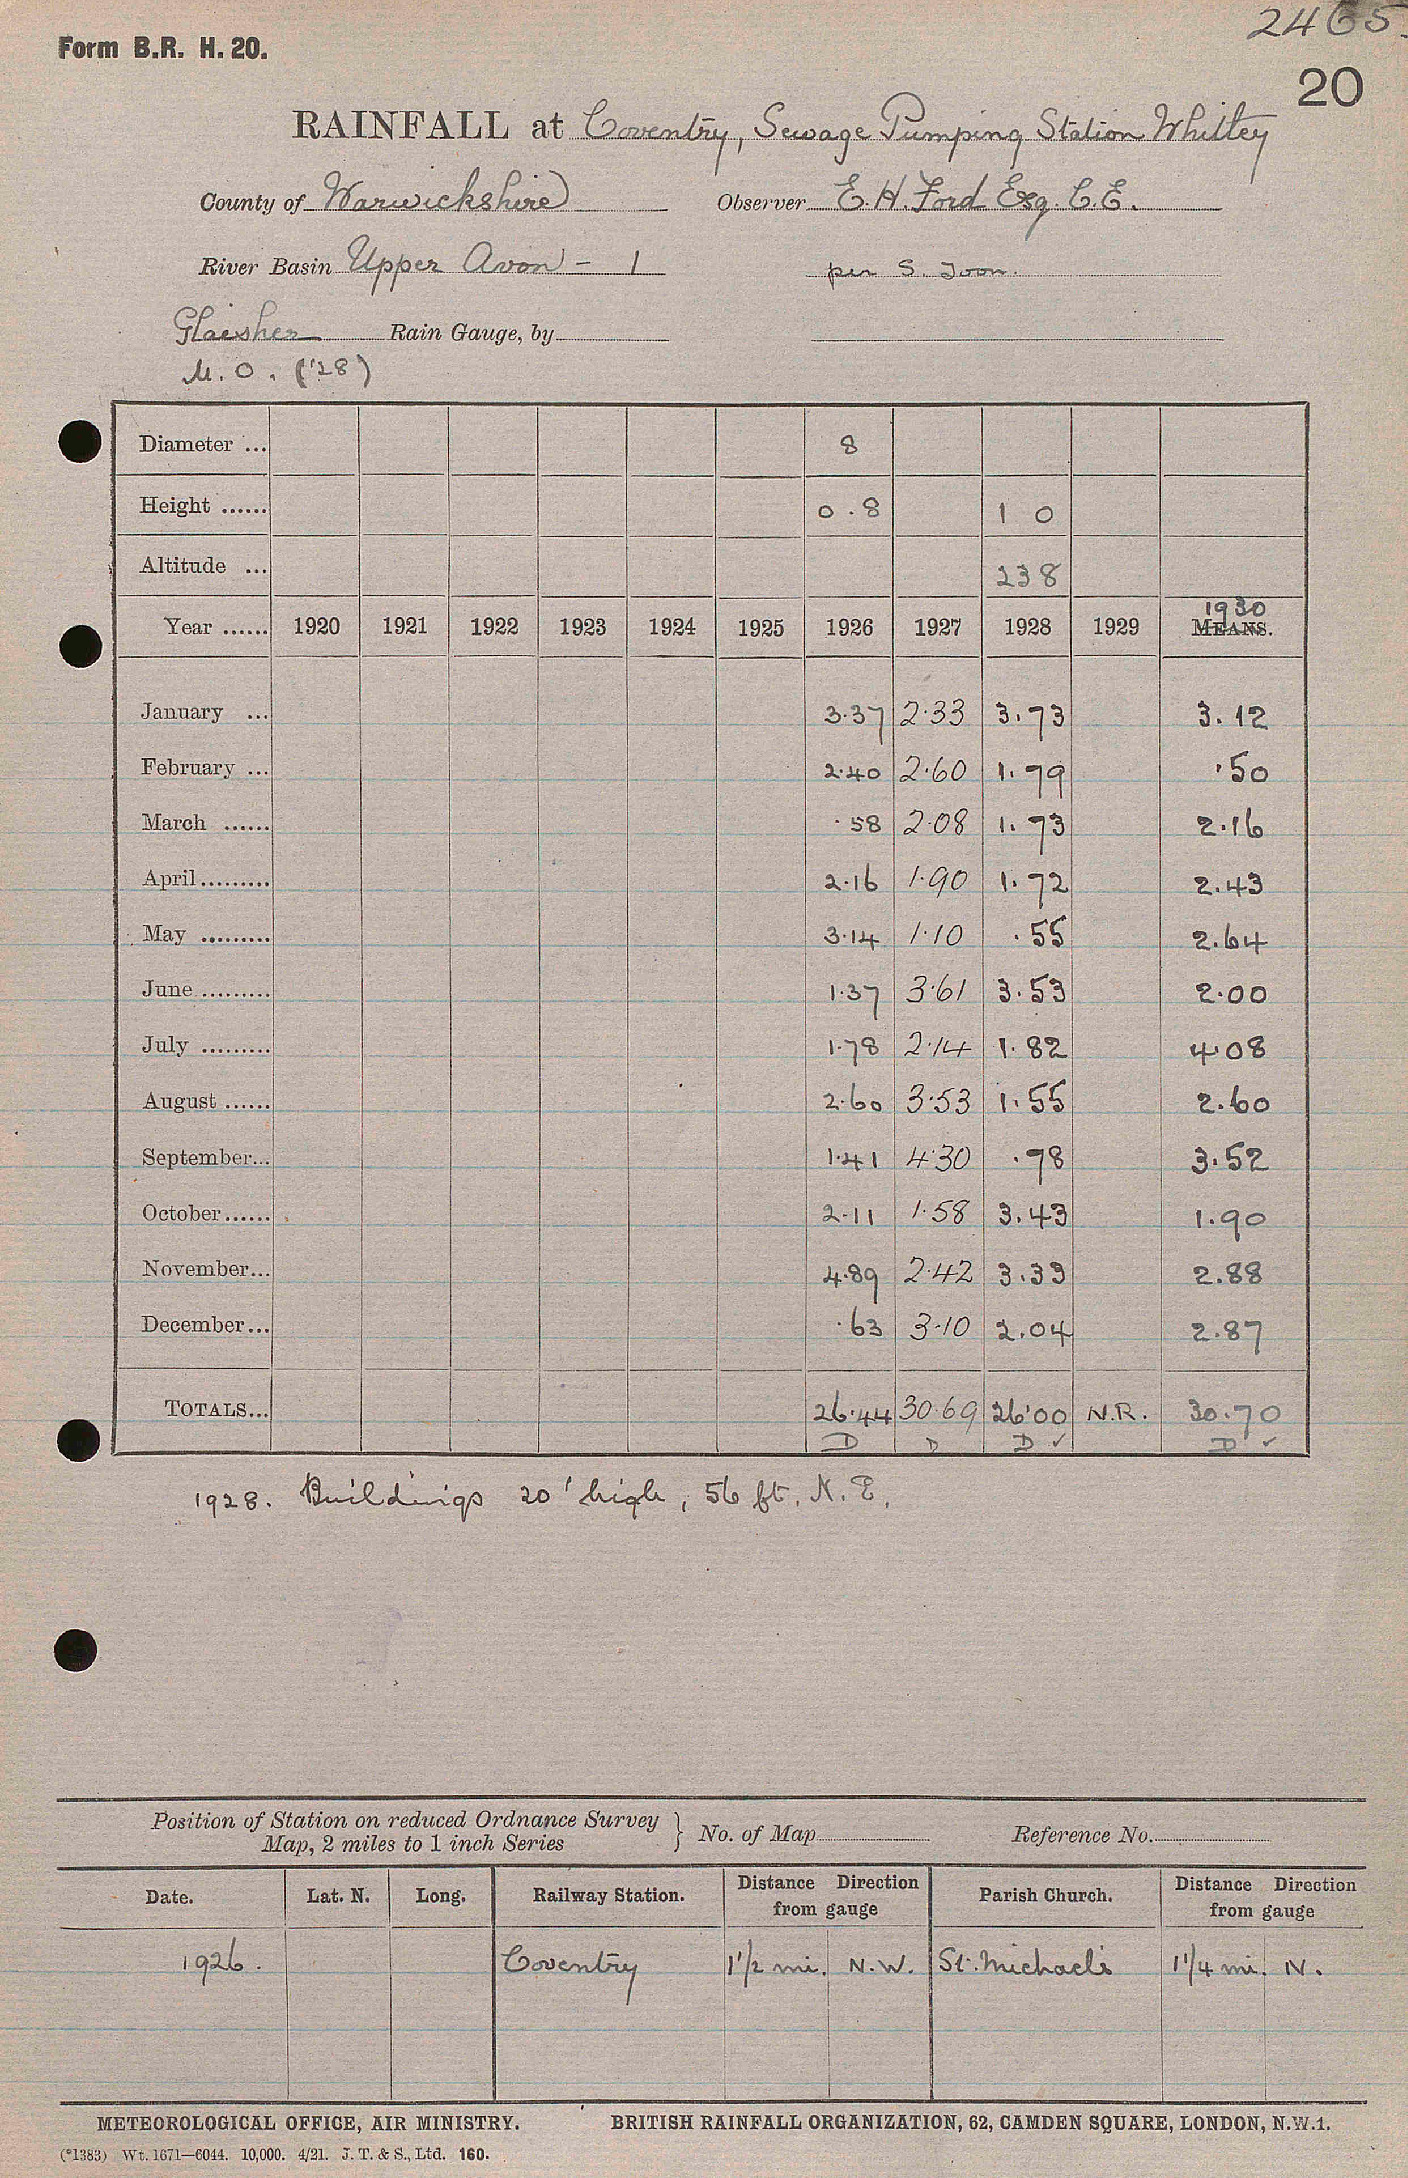 2465.
Form B.R. H. 20.
20
RAINFALL at Coventry, Sewage Pumping Station Whitley
County of Warwickshire Observer E. H. Ford Esq. C.E.
River Basin Upper Avon - 1 per S.
Glaisher Rain Gauge, by
M.O. ('28)
Diameter ... 8
Height ...... 0.8 1 0
Altitude ... 238
1930
Year ...... 1920 1921 1922 1923 1924 1925 1926 1927 1928 1929 MEANS.
January ... 3.37 2.33 3.73 3.12
February ... 2.40 2.60 1.79 .50
March ...... .58 2.08 1.73 2.16
April ......... 2.16 1.90 1.72 2.43
May ......... 3.14 1.10 .55 2.64
June ......... 1.37 3.61 3.53 2.00
July ......... 1.78 2.14 1.82 4.08
August ...... 2.60 3.53 1.55 2.60
September... 1.41 4.30 .78 3.52
October ...... 2.11 1.58 3.43 1.90
November... 4.89 2.42 3.33 2.88
December... .63 3.10 2.04 2.87
TOTALS... 26.44 30.69 26.00 N.R. 30.70
D D D ✓ D ✓
1928. Buildings 20' high, 56 ft. N.E.
Position of Station on reduced Ordnance Survey
Map, 2 miles to 1 inch Series } No. of Map Reference No.
Date. Lat. N. Long. Railway Station. Distance Direction from gauge Parish Church. Distance Direction from gauge
1926. Coventry 1 1/2 mi. N.W. St. Michael's 1 1/4 mi. N.
METEOROLOGICAL OFFICE, AIR MINISTRY. BRITISH RAINFALL ORGANIZATION, 62, CAMDEN SQUARE, LONDON, N.W.1.
(*1383) Wt. 1671—6044. 10,000. 4/21. J. T. & S., Ltd. 160.